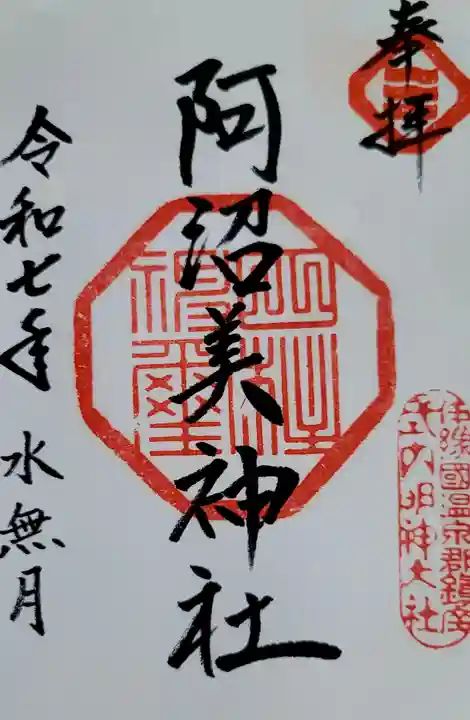 奉拝
阿沼美神社
令和七年 水無月
伊豫國温泉郡鎮座
式内明神大社